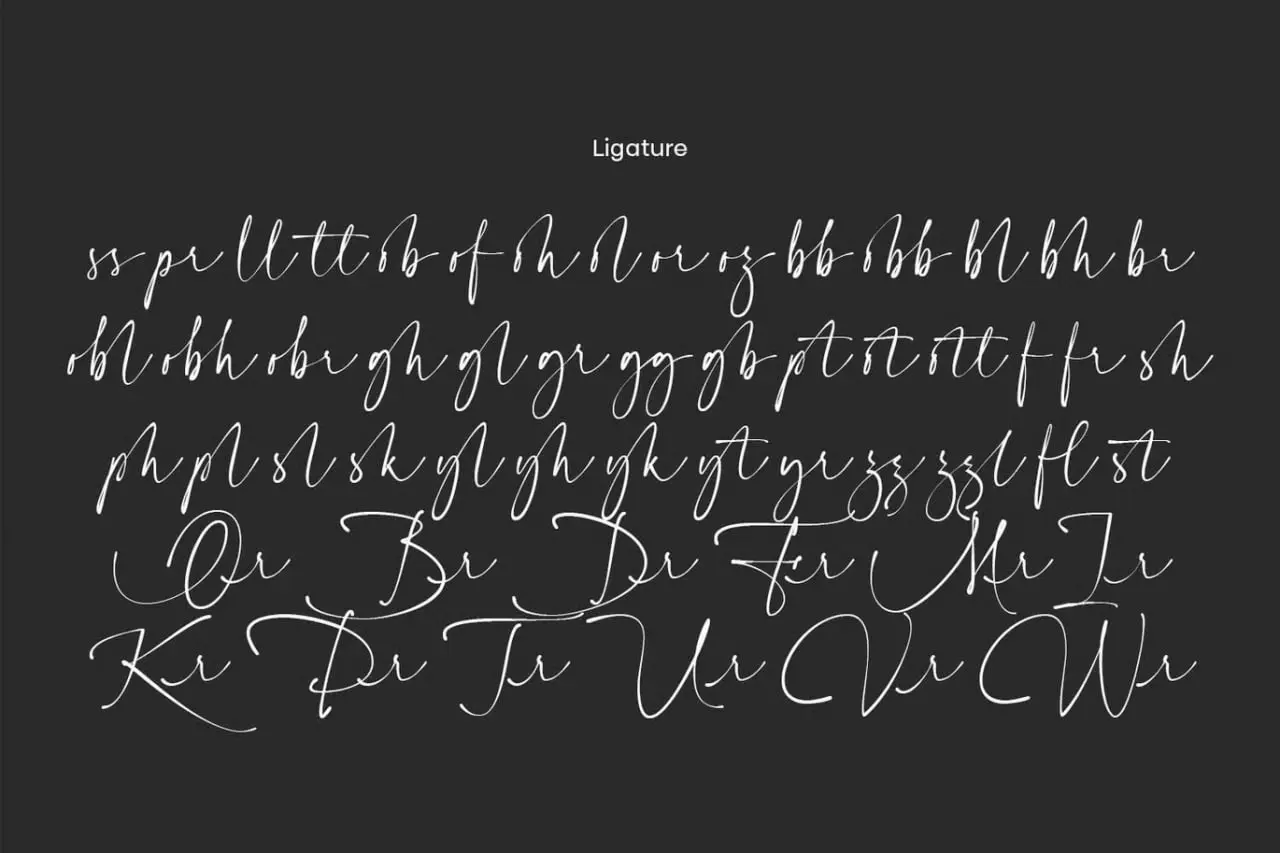 Ligature
ss pr ll tt ob of oh ol or oz bb obb bl bh br
obl obh obr gh gl gr gg gb pt ot ott f fr sh
ph pl sl sk yl yh yk yt yr zz zzl fl st
Or Br Dr Fr Mr Ir
Kr Pr Tr Ur Vr Wr